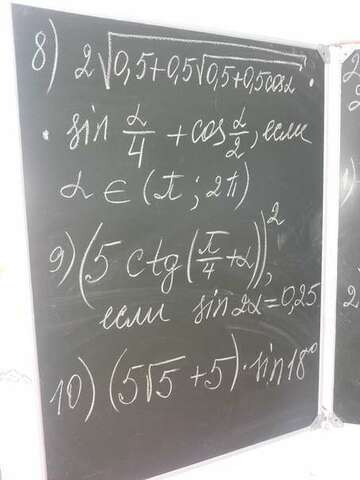 8) 2√(0,5+0,5√(0,5+0,5cosα)) ·
· sin α/4 + cos α/2, если
α ∈ (π ; 2π)
9) (5 ctg(π/4 + α))²,
если sin2α = 0,25
10) (5√5 + 5) · sin18°